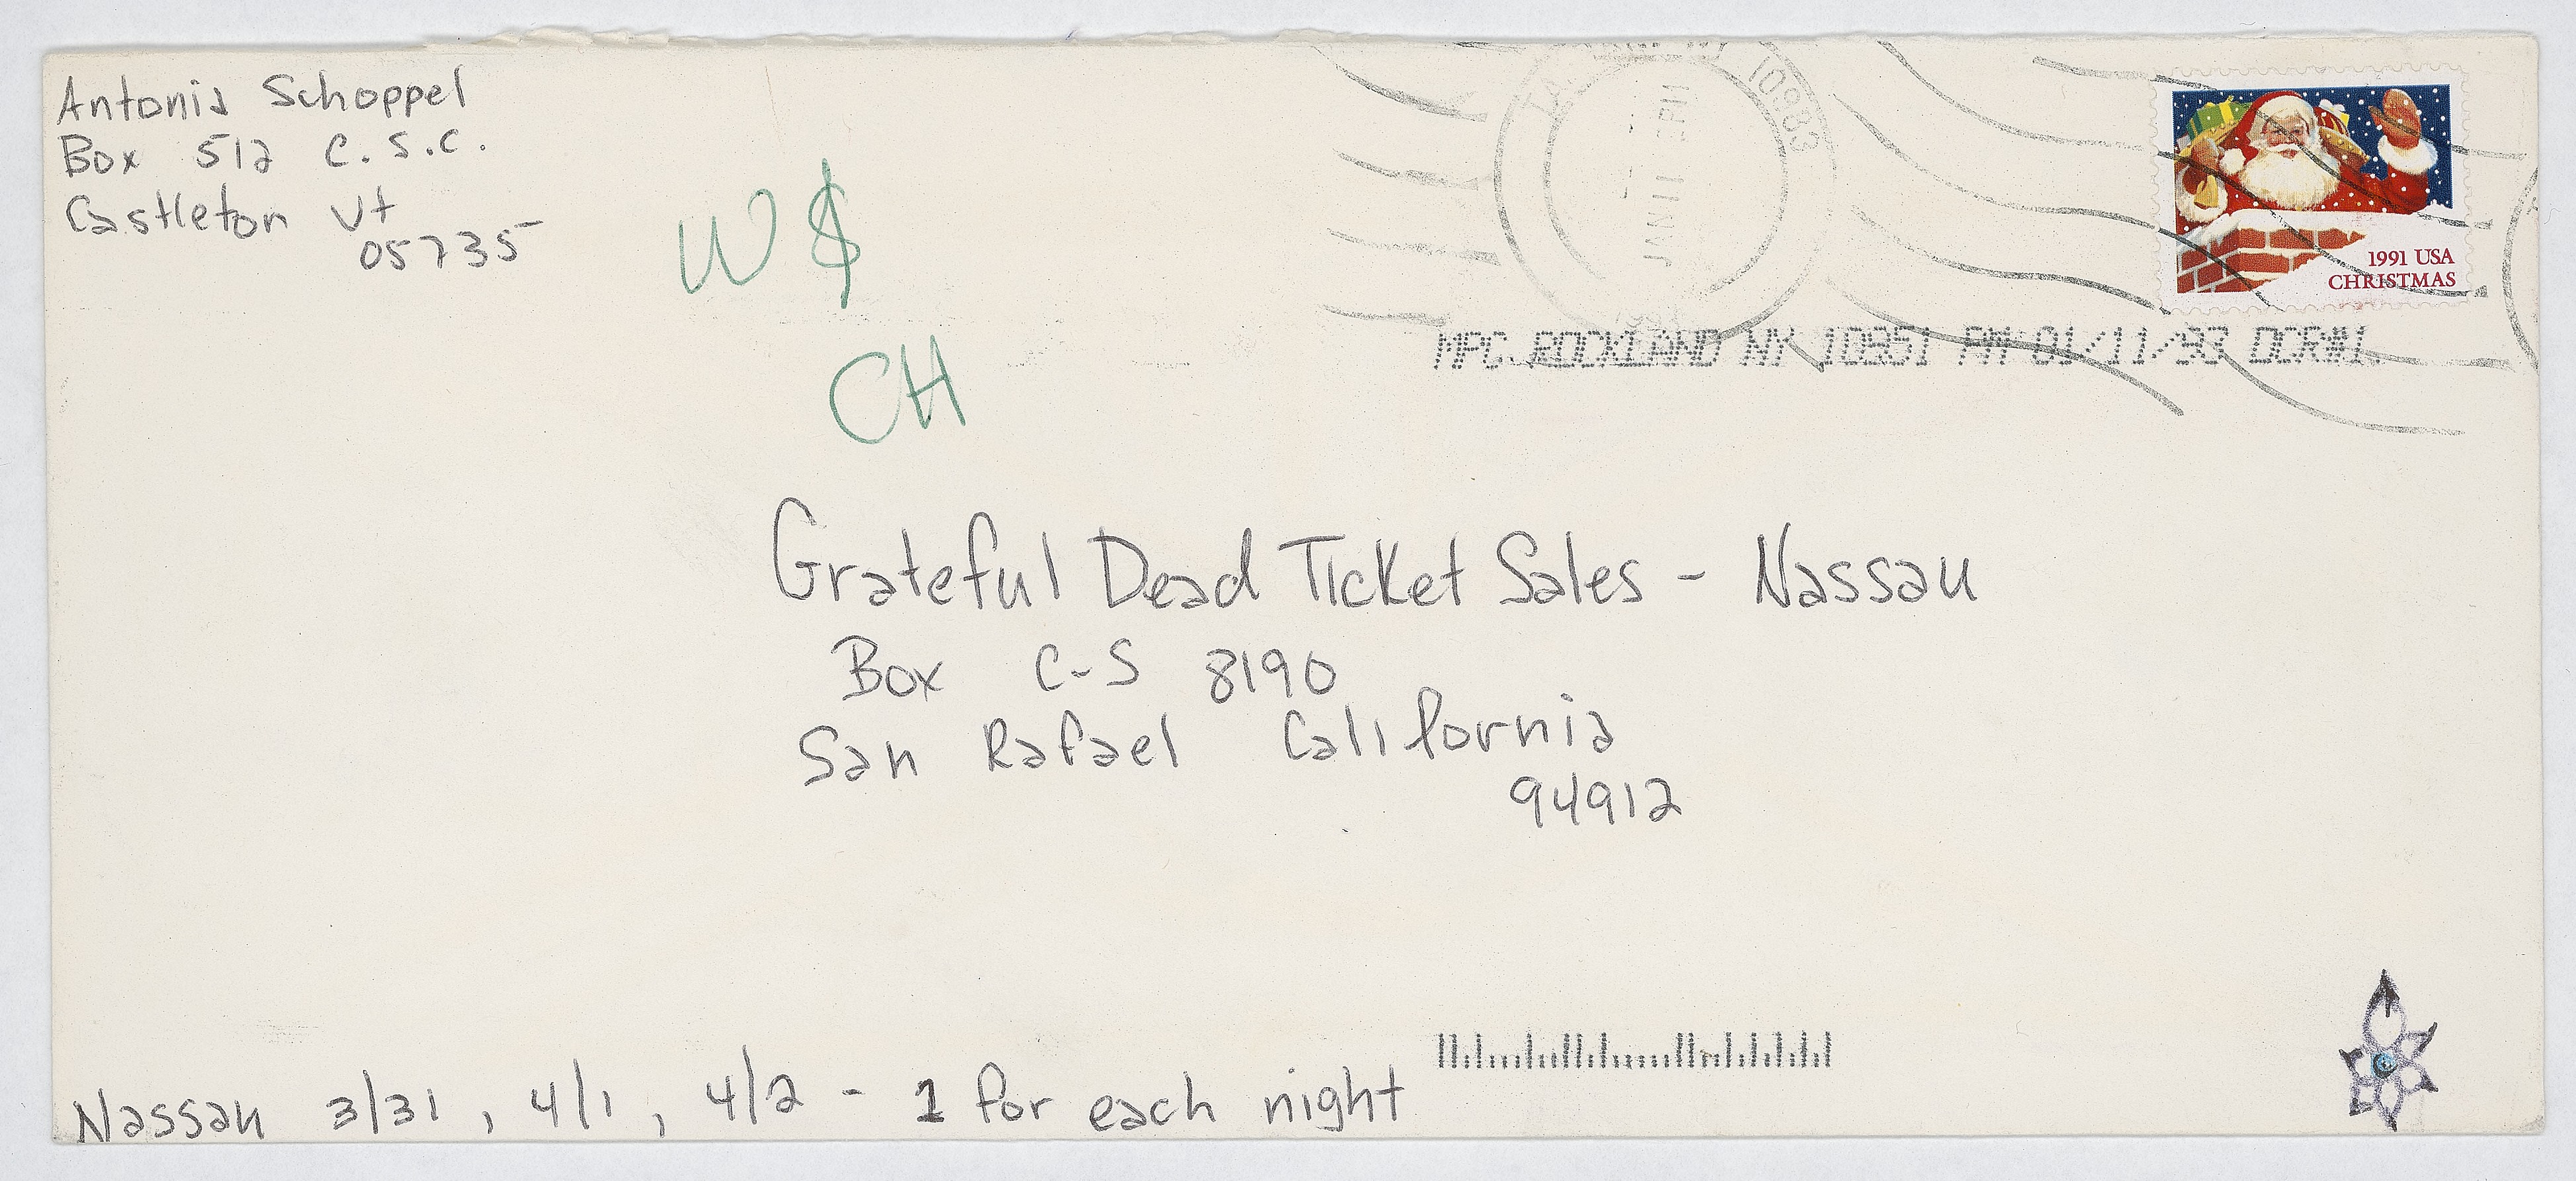 Antonia Schoppel
Box 512 C.S.C.
Castleton Vt
05735
W $
CH
10983
JAN 11 PM
1991 USA
CHRISTMAS
MPC ROCKLAND NY 10951 AM 01/11/93
Grateful Dead Ticket Sales - Nassau
Box C-S 8190
San Rafael California
94912
Nassau 3/31, 4/1, 4/2 - 1 for each night